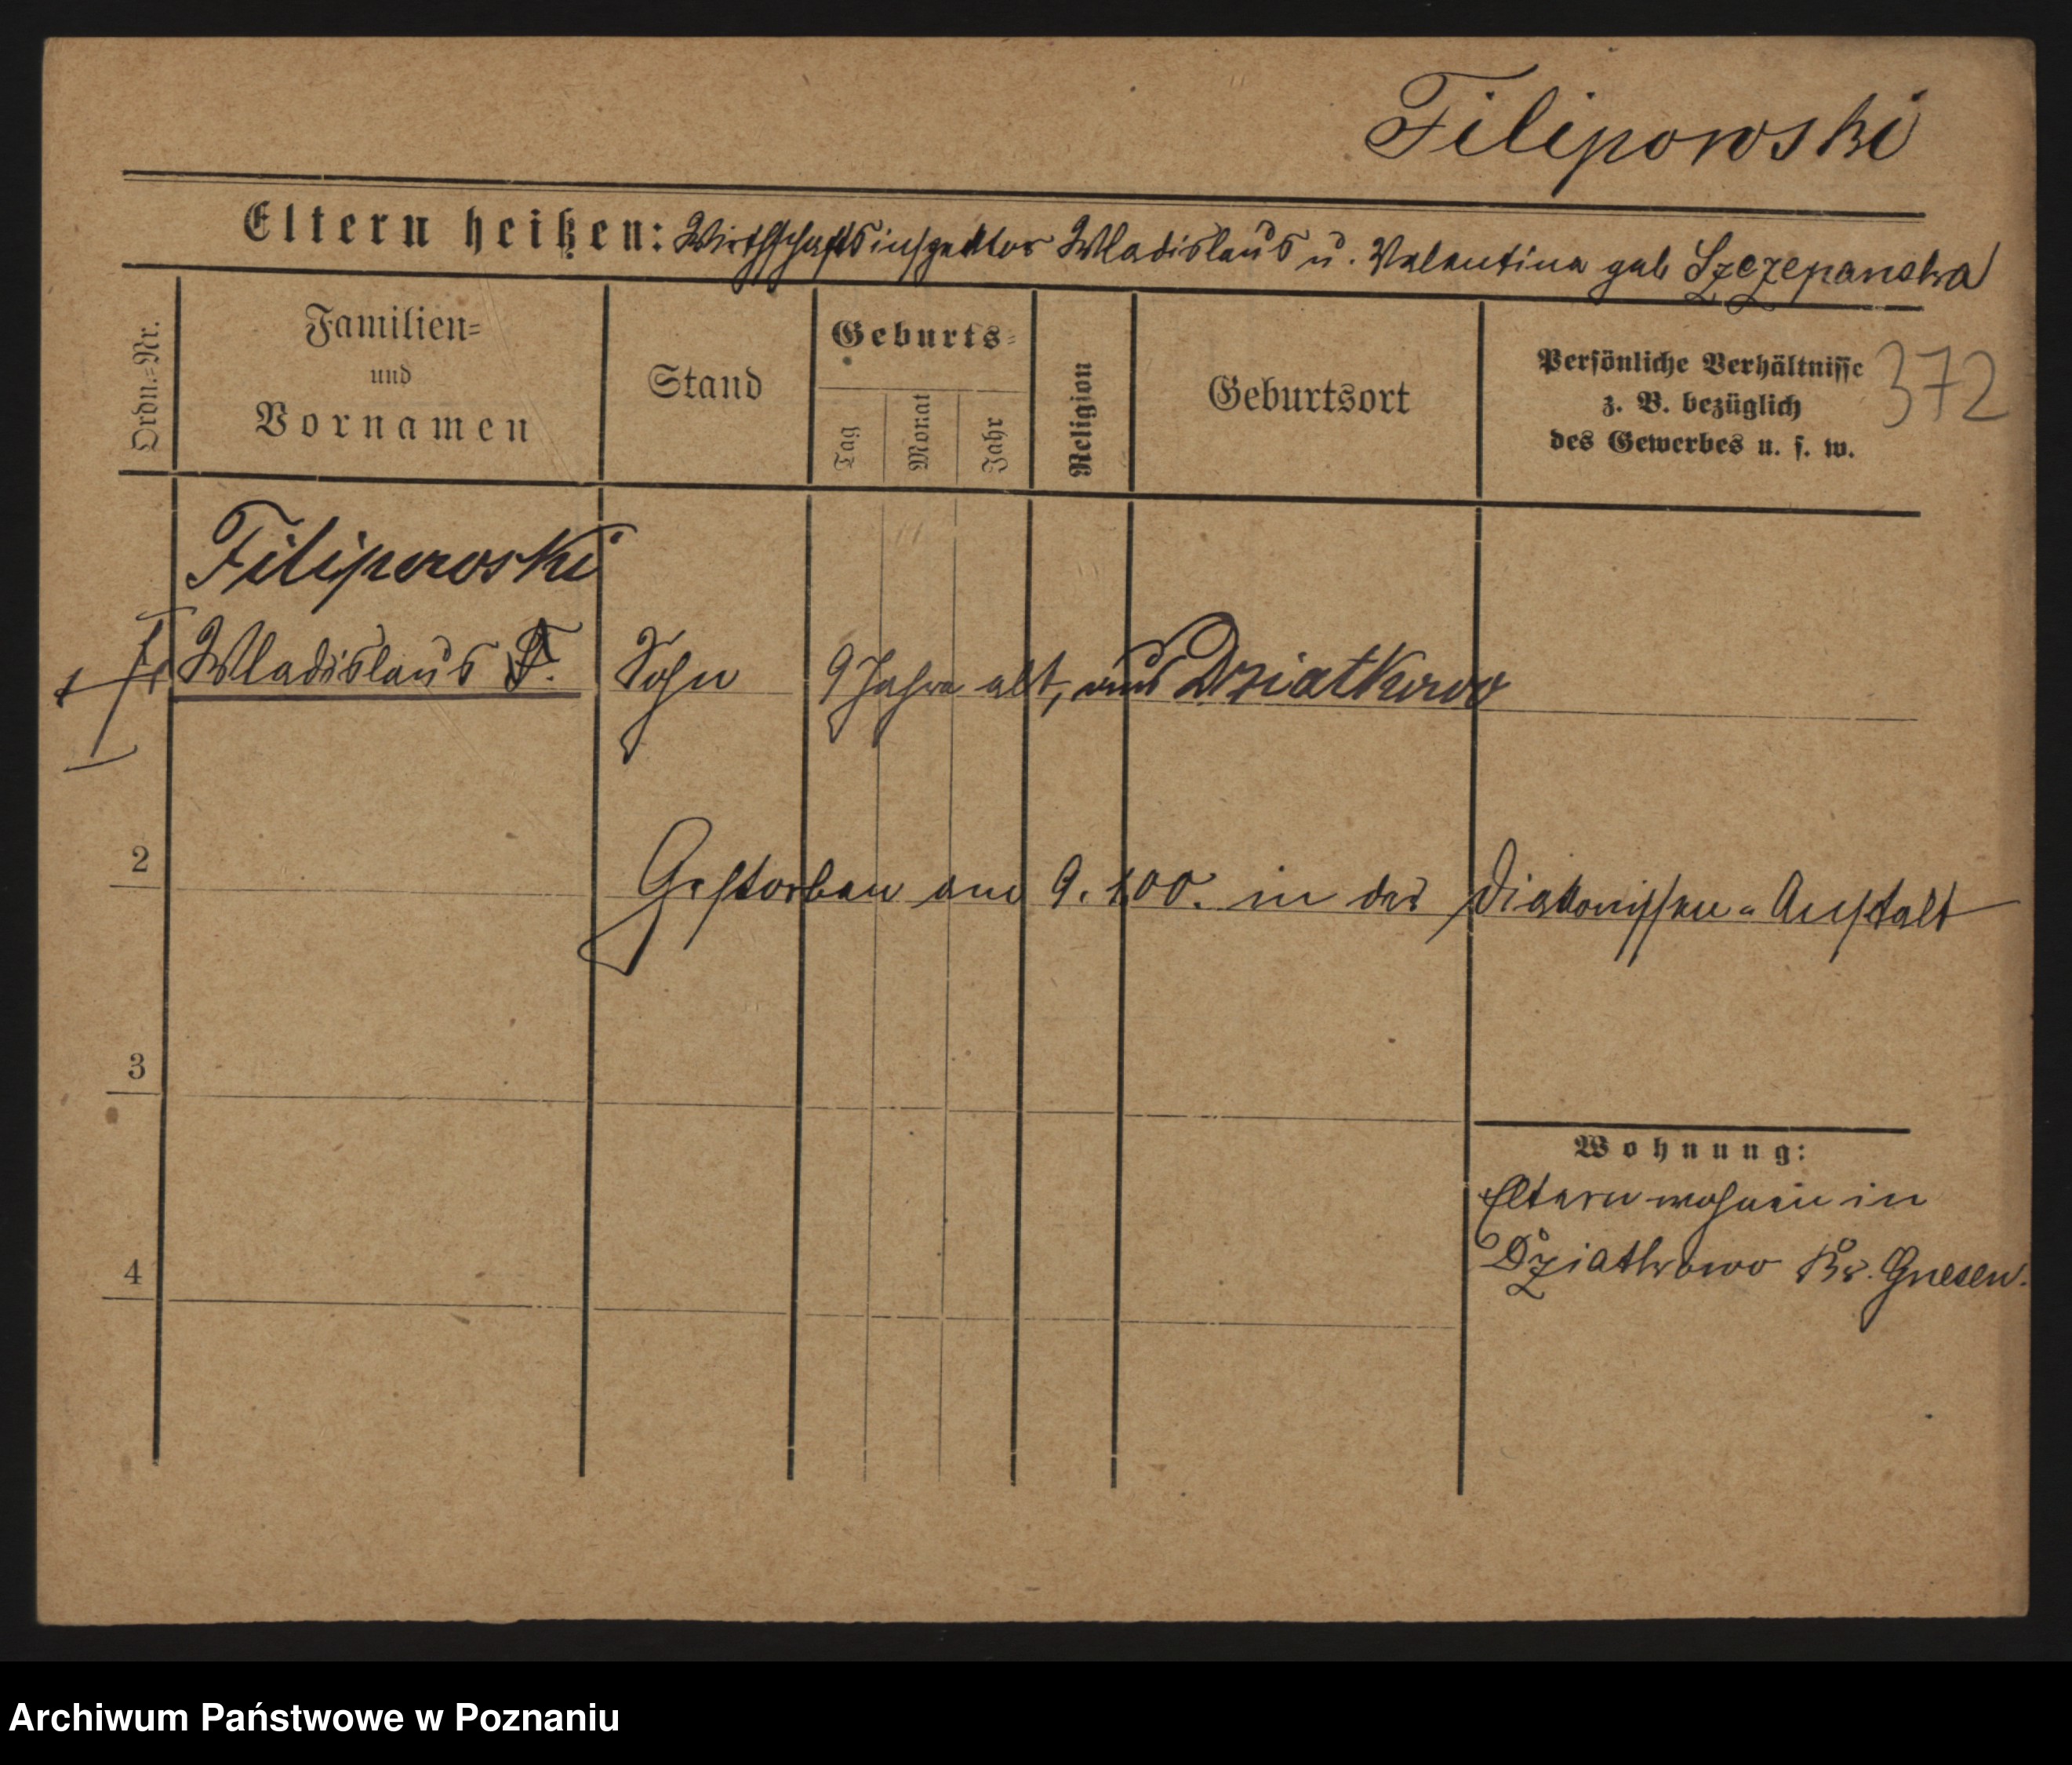 Filipowski
Eltern heißen: Wirthschaftsinspektor Wladislaus u. Valentina geb Szczepanska
Ordn.-Nr.
Familien-
und
Vornamen
Stand
Geburts-
Tag
Monat
Jahr
Religion
Geburtsort
Persönliche Verhältnisse
z. B. bezüglich
des Gewerbes u. s. w.
372
Filipowski
Wladislaus F. Sohn 9 Jahre alt, aus Dziatkowo
2
Gestorben am 9. 1.00. in der Diakonissen-Anstalt
3
Wohnung:
Eltern wohnen in
Dziatkowo Kr. Gnesen.
4
Archiwum Państwowe w Poznaniu